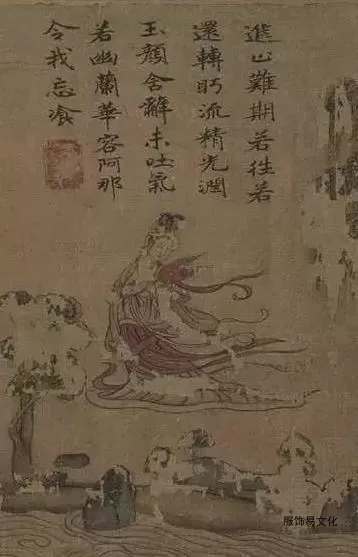 進止難期若徃若
還轉眄流精光潤
玉顏含辭未吐氣
若幽蘭華容阿那
令我忘湌
服饰易文化